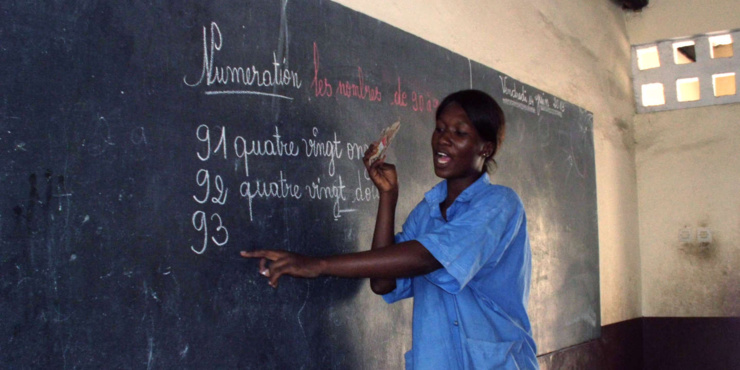 Numeration
les nombres de 90 à
Vendredi
91 quatre vingt
92 quatre vingt
93